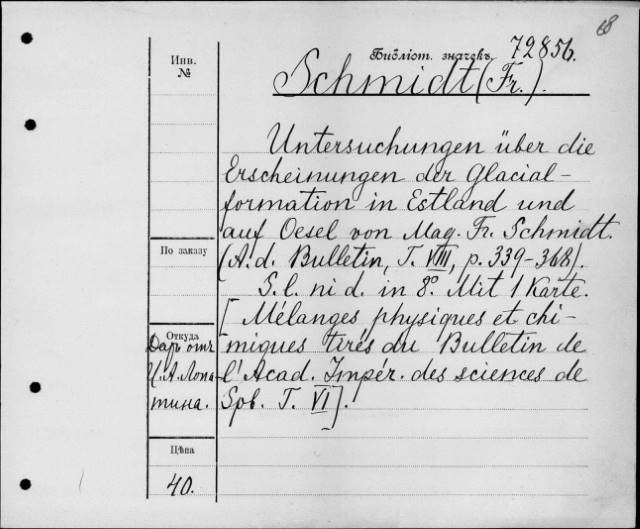 68
Библіот. значекъ 72856.
Инв.
№
Schmidt (Fr.).
Untersuchungen über die
Erscheinungen der Glacial-
formation in Estland und
auf Oesel von Mag. Fr. Schmidt.
По заказу
(A. d. Bulletin, T. VIII, p. 339-368).
S. l. ni d. in 8°. Mit 1 Karte.
[Mélanges physiques et chi-
Откуда
Даръ отъ
И. А. Лопа-
тина.
miques tirés du Bulletin de
l'Acad. Impér. des sciences de
Spb. T. VI].
Цѣна
40.